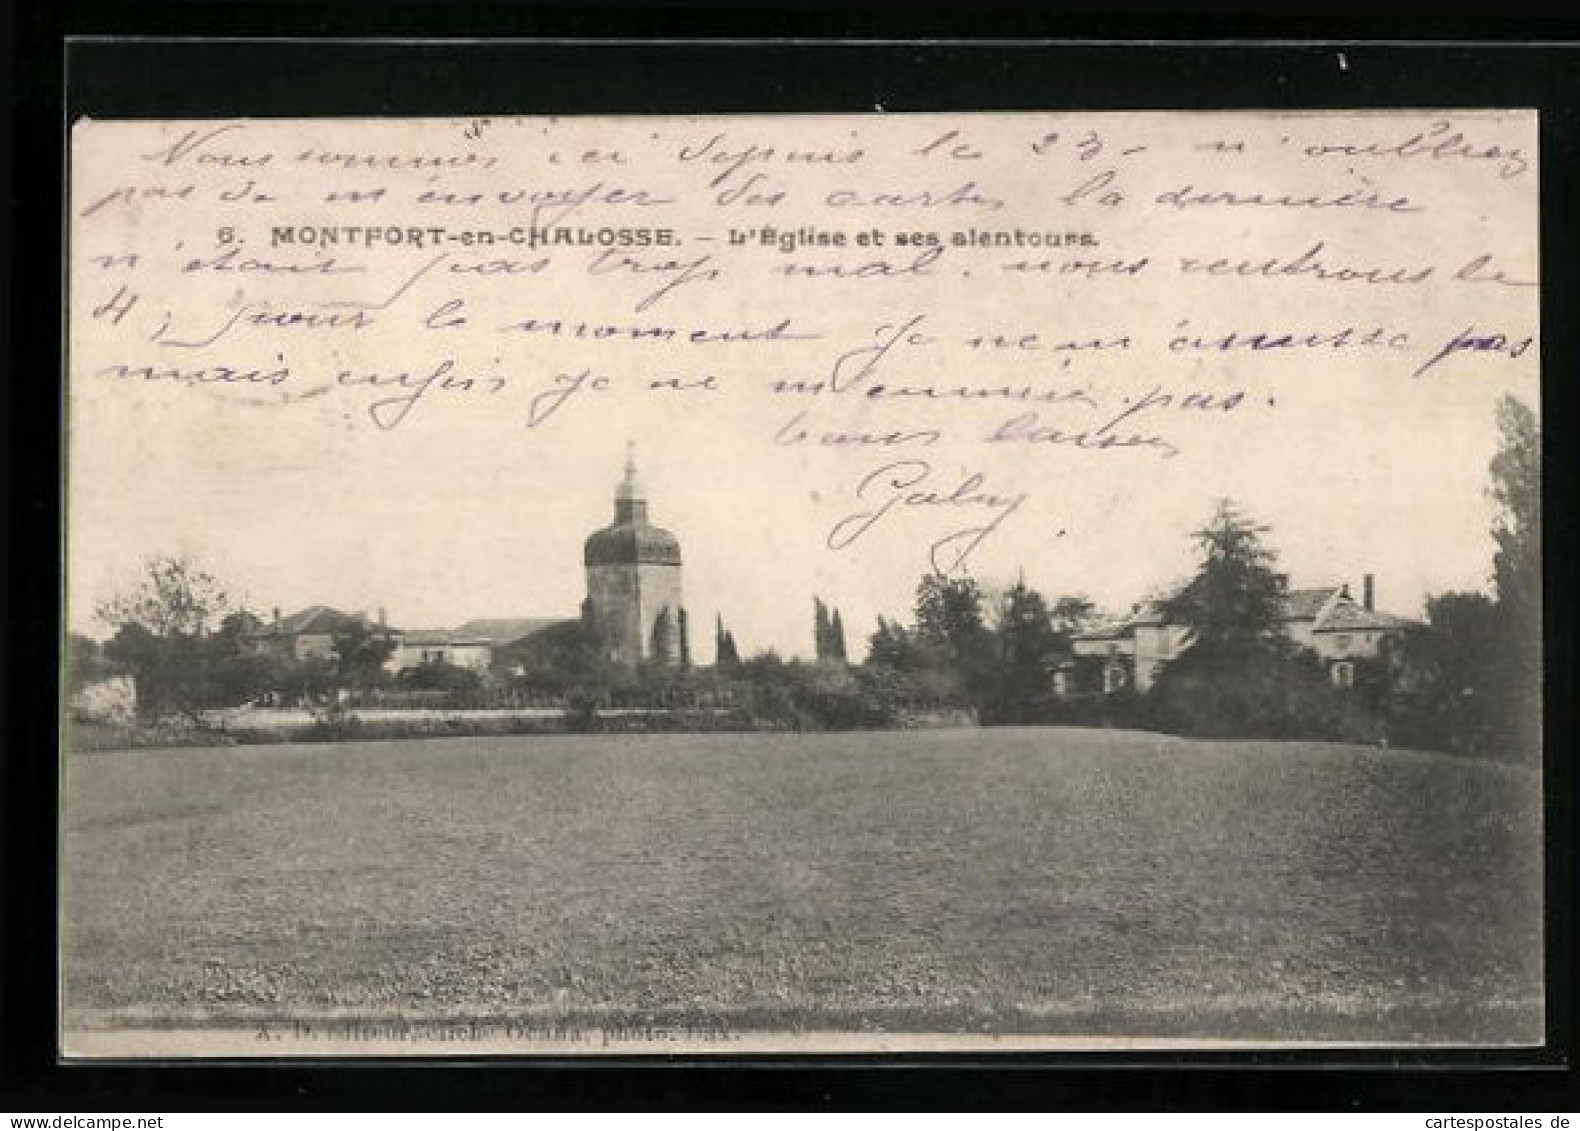 Nous sommes ici depuis le 23 - n'oubliez
pas de m'envoyer des cartes la dernière
6. MONTFORT-en-CHALOSSE. - L'Église et ses alentours.
n'était pas trop mal. nous rentrons le
4, pour le moment je ne m'amuse pas
mais enfin je ne m'ennuie pas.
baisers
Gaby
A. D. éditeur, cliché Ocaña, photo. Dax.
cartespostales.delcampe.net
cartespostales de